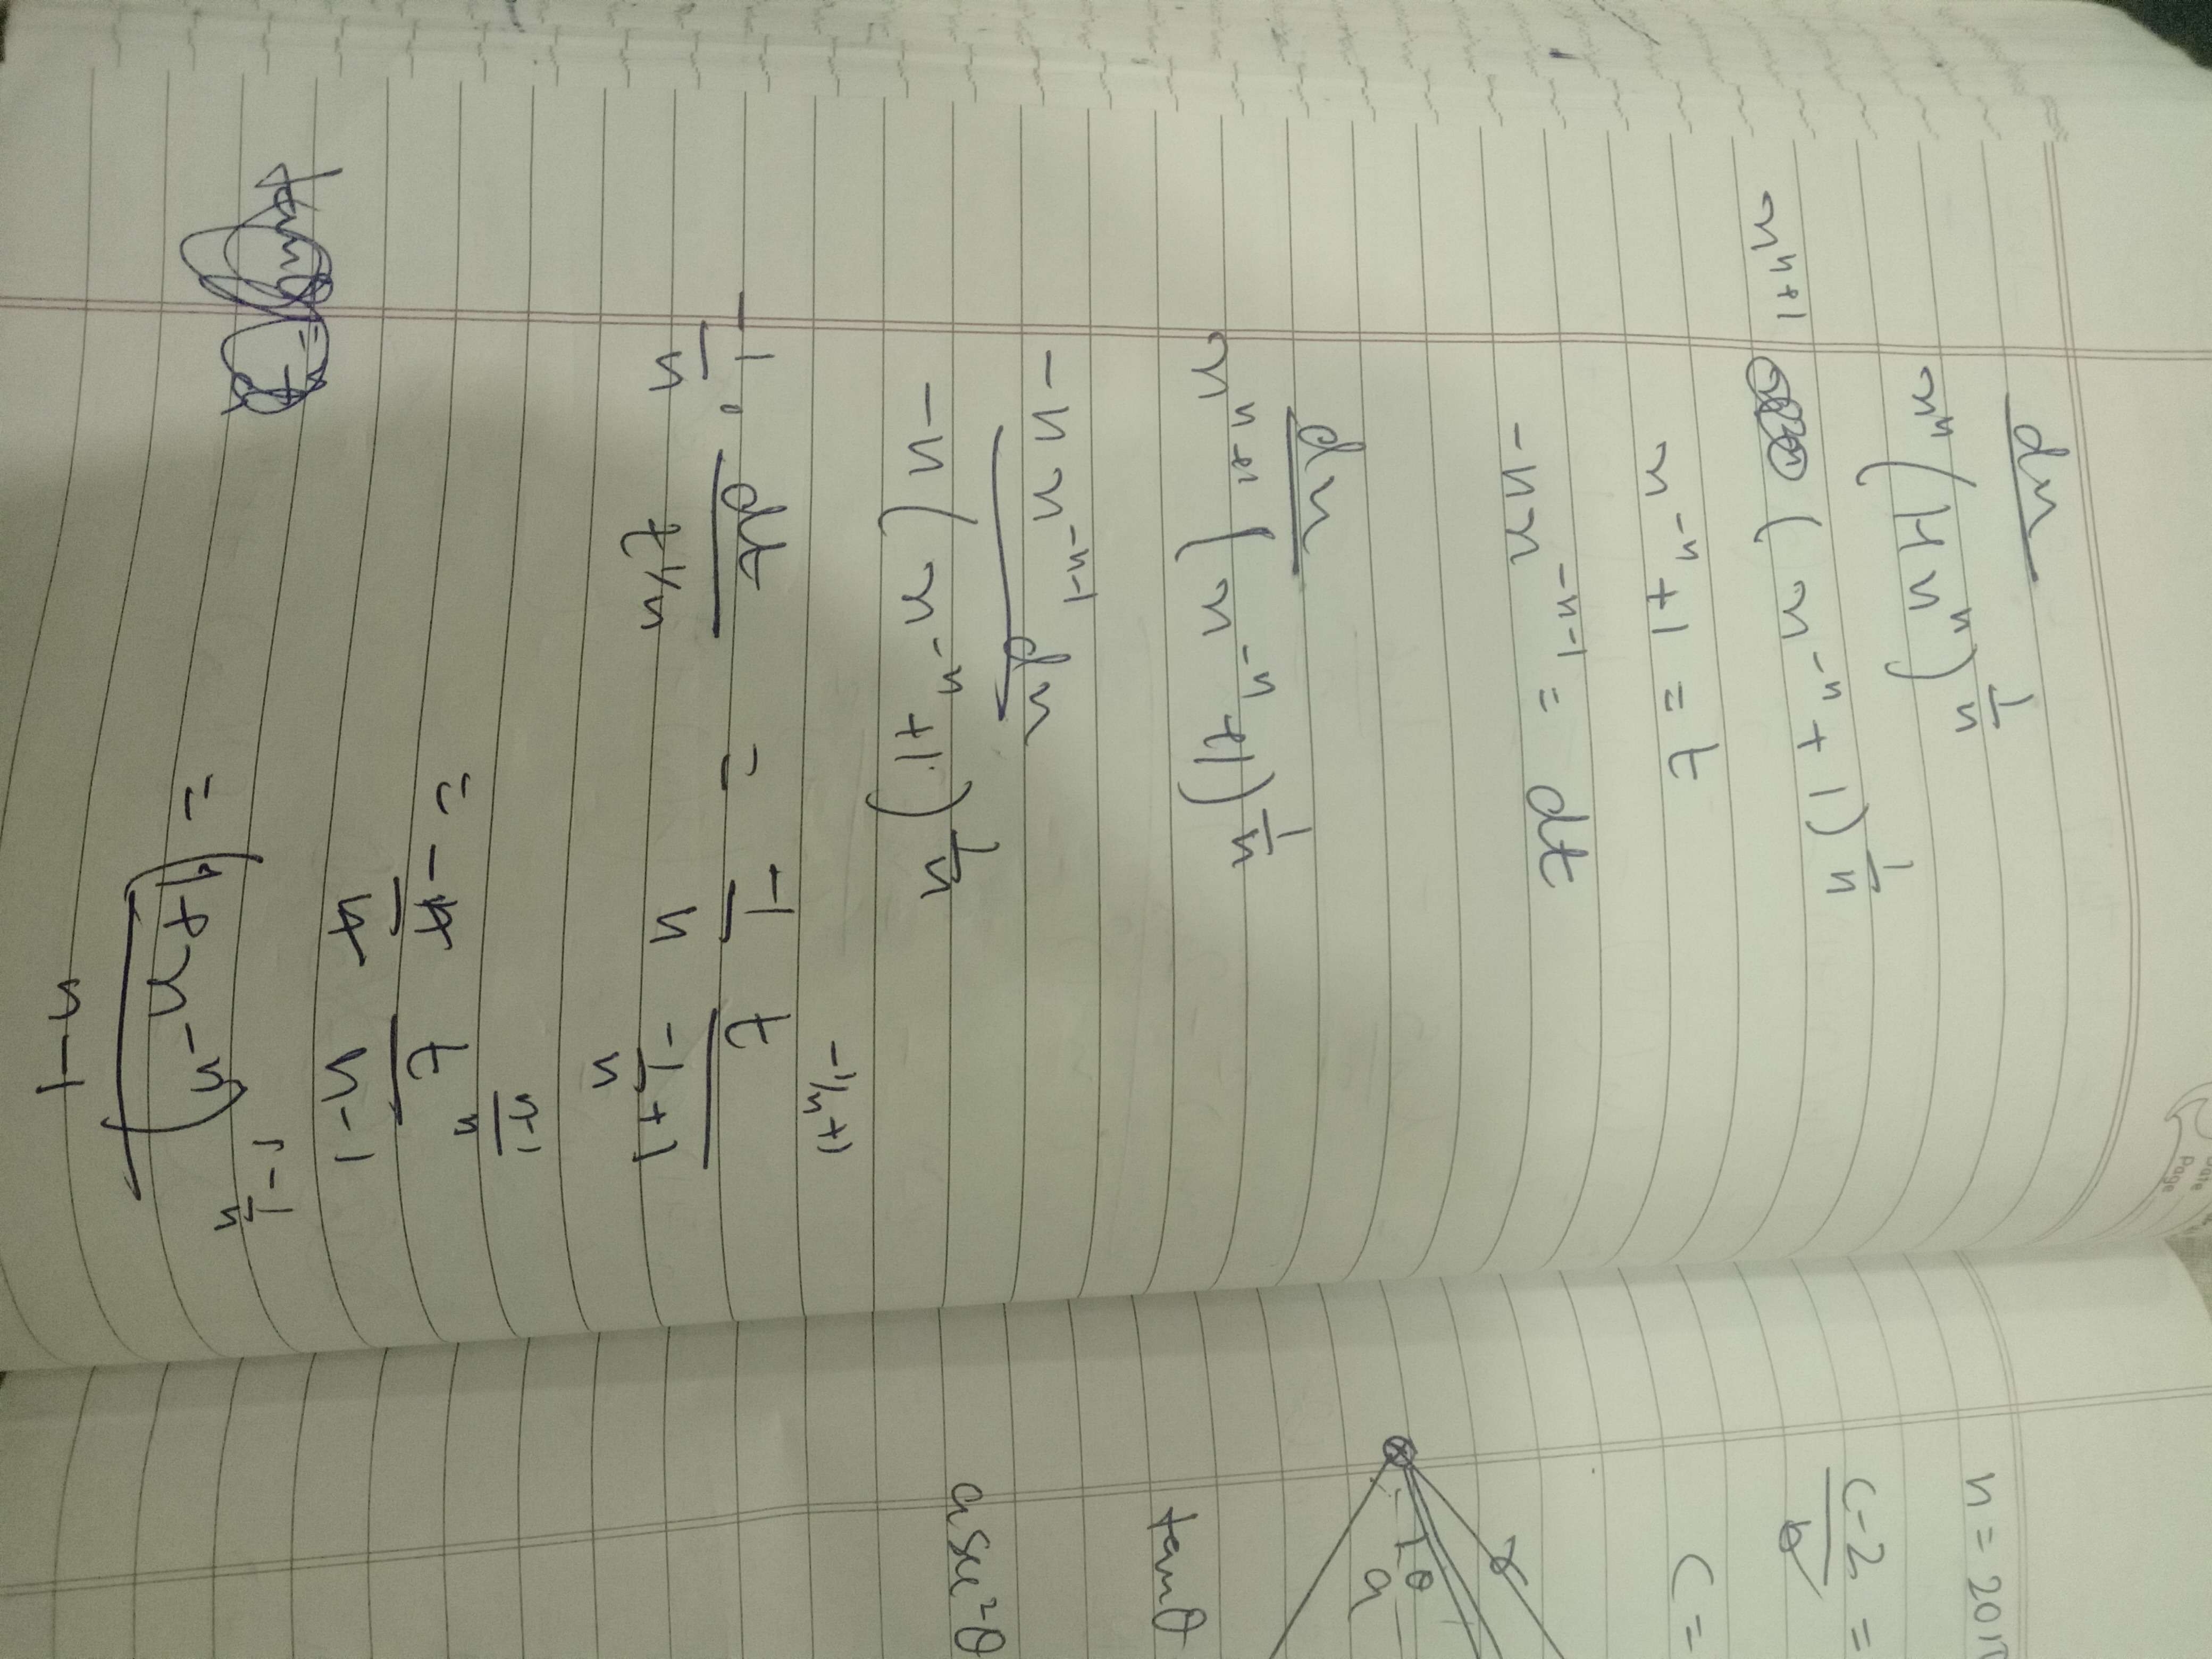 dx
x^n (1+x^n)^1/n
x^n+1 ( x^-n + 1 )^1/n
x^-n + 1 = t
-n x^-n-1 = dt
dx
x^n+1 ( x^-n + 1 )^1/n
-n x^-n-1 dx
-n ( x^-n + 1 )^1/n
-1/n · dt / t^1/n = -1/n t^-1/n+1 / -1/n + 1
= -1/n t^n-1/n / n-1/n
= (1 + x^-n)^1-1/n / 1-n
Date
Page
n = 2017
c-2 =
c =
θ
a
tanθ
a sec²θ